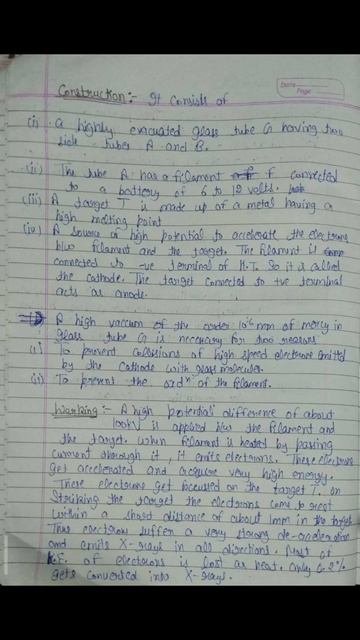 Date
Page
Construction:- It consists of
(i) a highly evacuated glass tube G having two
side tubes A and B.
(ii) The tube A has a filament F connected
to a battery of 6 to 12 volts.
(iii) A target T is made up of a metal having a
high melting point
(iv) A source of high potential to accelerate the electrons
b/w filament and the target. The filament is
connected to -ve terminal of H.T. So it is called
the cathode. The target connected to +ve terminal
acts as anode.
A high vaccum of the order 10⁻⁶ mm of mercury in
glass tube G is necessary for two reasons
(i) To prevent collisions of high speed electrons emitted
by the cathode with molecules.
(ii) To prevent the of the filament.
Working:- A high potential difference of about
100kV is applied b/w the filament and
the target. When filament is heated by passing
current through it, it emits electrons. These electrons
get accelerated and acquire very high energy.
These electrons get focussed on the target T. On
striking the target the electrons come to rest
within a short distance of about 1mm in the target
Thus electrons suffer a very strong de-acceleration
and emits X-rays in all directions. Most of
K.E. of electrons is lost as heat. Only 0.2%
gets converted into X-rays.